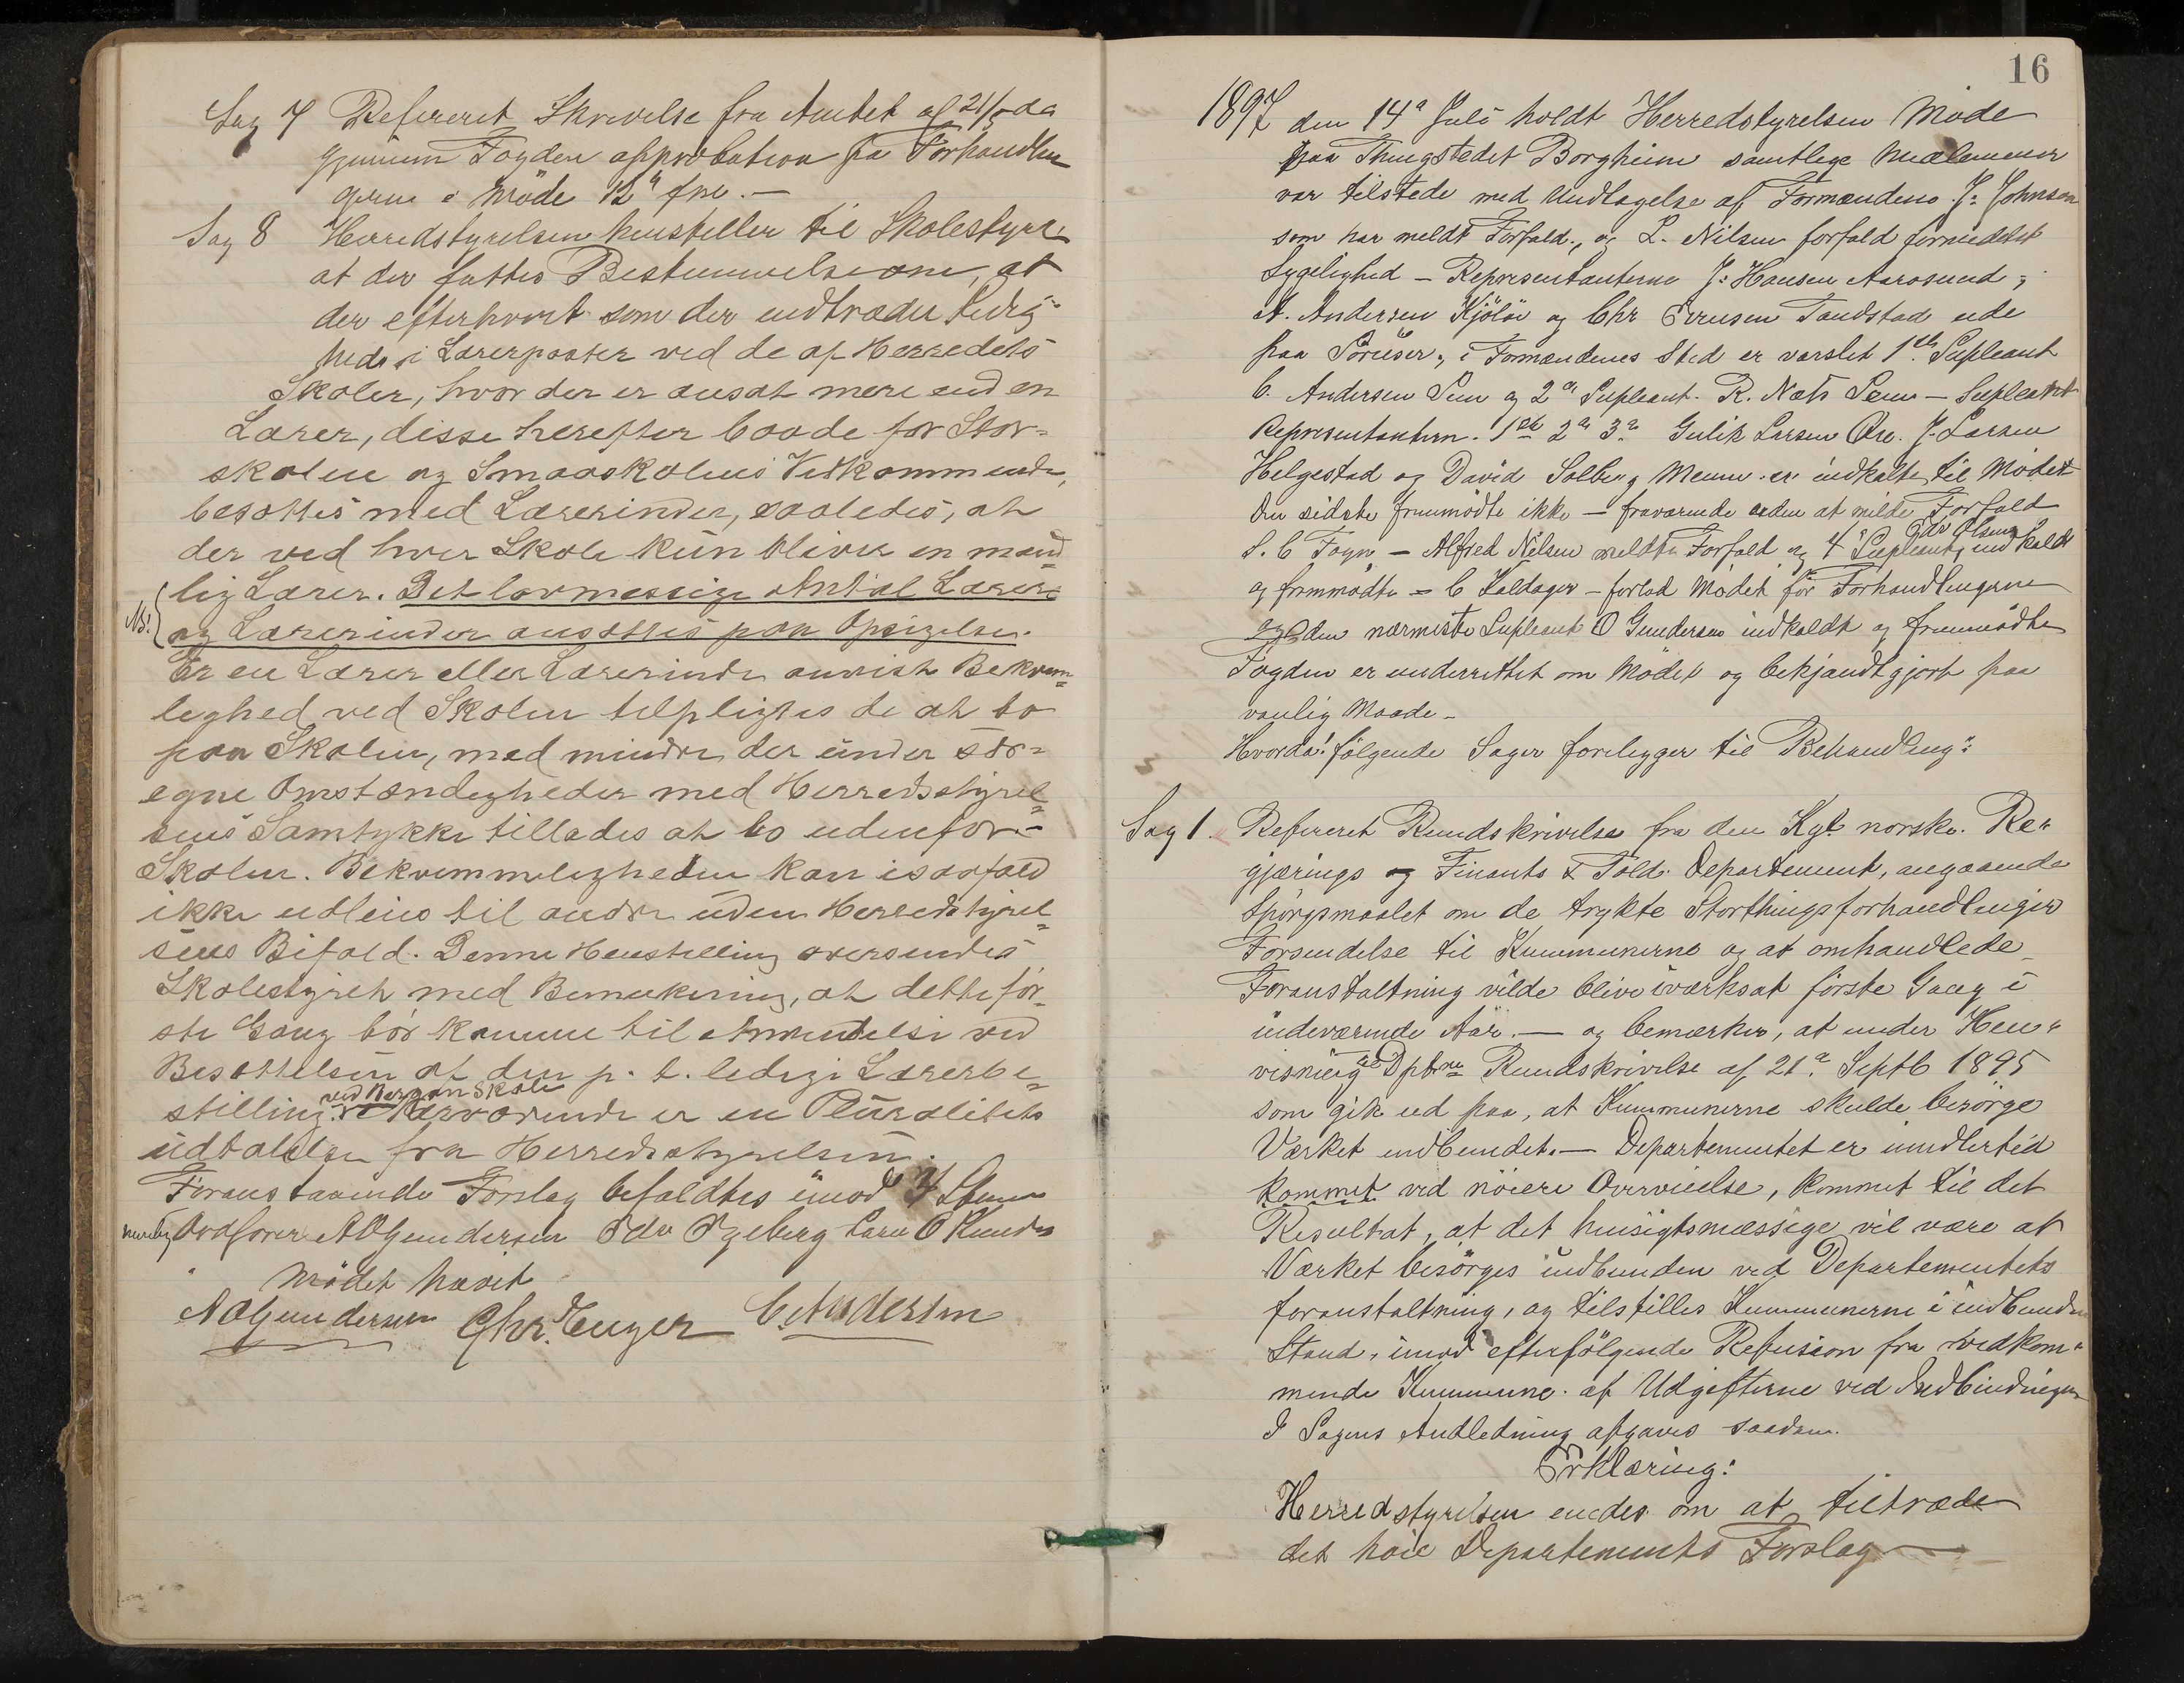 Sag 7 Refereret Skrivelse fra Amtet af 21/5 da
gjennem Fogden approbation paa Forhandlin
gerne i Møde 12te fne. —
Sag 8 Herredstyrelsen henstiller til Skolestyret
at der fattes Bestemmelse om, at
der efterhvert som der indtræder Ledig-
hed i Lærerposter ved de af Herredets
Skoler, hvor der er ansat mere end en
Lærer, disse herefter baade for Stor-
skolen og Smaaskolens Vedkommende,
besættes med Lærerinder, saaledes, at
der ved hver Skole kun bliver en mand-
lig Lærer. Det lovmessige Antal Lærere
NB! og Lærerinder ansættes paa Opsigelse.
Er en Lærer eller Lærerinde anvist Bekvem-
leghed ved Skolen tilpligtes de at bo
paa Skolen, med mindre der under sær-
egne Omstændigheder med Herredsstyrel-
sens Samtykke tillades at bo udenfor
Skolen. Bekvemmeligheden kan isaafald
ikke udleies til andre uden Herredsstyrel-
sens Bifald. Denne Henstilling oversendes
Skolestyret med Bemerkning, at dette før-
ste Gang bør komme til Anvendelse ved
Besættelsen af den p. t. ledige Lærerbe-
ved Bergan Skole
stilling. Nærværende er en Pluralitets
udtalelse fra Herredsstyrelsen.
Foranstaaende Forslag bifaldtes imod 4 Stem
nemlig Ordfører A O Gundersen Edv Sjeberg Lars O Knudsen
Mødet hævet
A O Gundersen Chr. Enger C. Andersen
16
1897 den 14de Juli holdt Herredstyrelsen Møde
paa Thingstedet Borgheim samtlige Medlemmer
var tilstede med Undtagelse af Formændene J. Johnsen
som har meldt Forfald, og L. Nilsen forfald formedelst
Sygelighed — Representanterne J. Hansen Aarosund,
A. Andersen Kjøløe og Chr Iversen Tandstad ude
paa Søreiser, i Formændenes Sted er varslet 1ste Supleant
C. Andersen Sem og 2den Supleant R. Næts Sem — Supleant
Representanten. 1ste 2den 3die Gulik Larsen Øre. J. Larsen
Helgestad og David Solberg Menne er indkaldte til Mødet
Den sidste fremmødte ikke — fraværende uden at melde Forfald
Edv Olsen
S. C Fogn — Alfred Nilsen meldte Forfald og 4de Supleant indkaldt
og fremmødte — C Haldager — forlod Mødet før Forhandlingerne
og den nærmeste Supleant O Gundersen indkaldt og fremmødte
Fogden er underrettet om Mødet og bekjendtgjort paa
vanlig Maade —
Hvorda følgende Sager foreligger til Behandling:
Sag 1. Refereret Rundskrivelse fra den Kgl. norske Re-
gjerings og Finants & Told Departement, angaaende
Spørgsmaalet om de trykte Storthingsforhandlinger
Forsendelse til Kummunerne og at omhandlede
Foranstaltning vilde blive iværksat første Gang i
indeværende Aar. — og bemærker, at under Hen-
visning til Dptrne Rundskrivelse af 21de Septb 1895
som gik ud paa, at Kummunerne skulde besørge
Værket indbundet. — Departementet er imidlertid
kommet ved nøiere Overveielse, kommet til det
Resultat, at det hensigtsmæssige vil være at
Værket besørges indbunden ved Departementets
foranstaltning, og tilstilles Kummunerne i indbunden
Stand, imod efterfølgende Refusion fra vedkom-
mende Kummune af Udgifterne ved Indbindingen
I Sagens Andledning afgaves saadan
Erklæring:
Herredstyrelsen enedes om at tiltræde
det høie Departements Forslag —